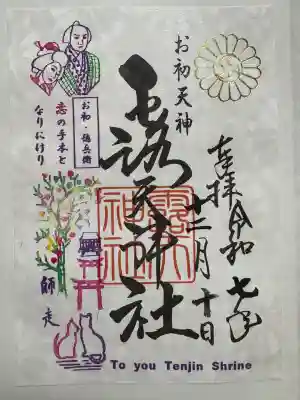 お初天神
奉拝 令和七年
十二月十日
露天神社
露天
神社
お初・徳兵衛
恋の手本と
なりにけり
師走
To you Tenjin Shrine